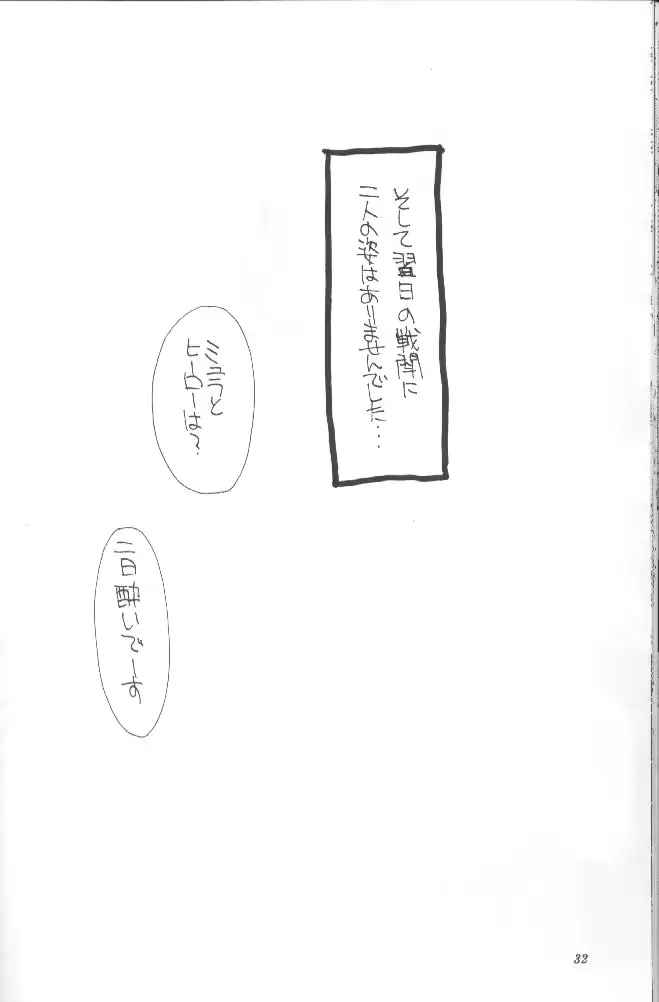 そして翌日の戦闘に
二人の姿はありませんでした…
ミネラと
ヒーローは?
二日酔いでーす
32